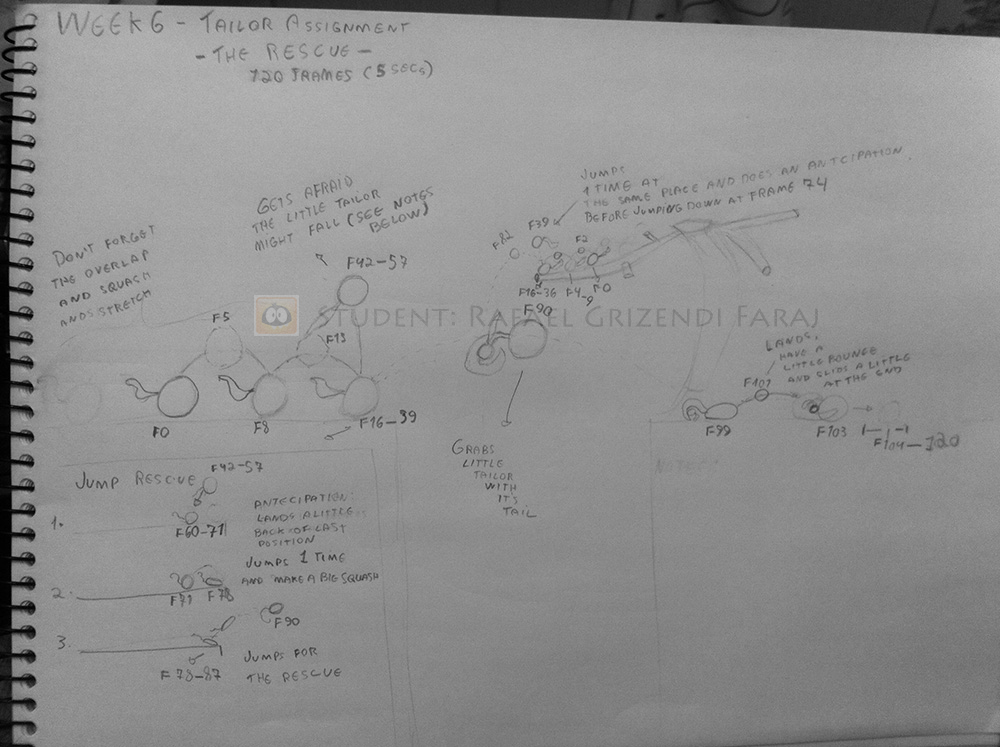 WEEK 6 - TAILOR ASSIGNMENT
- THE RESCUE -
120 FRAMES (5 SECS)
DON'T FORGET
THE OVERLAP
AND SQUASH
AND STRETCH
GETS AFRAID
THE LITTLE TAILOR
MIGHT FALL (SEE NOTES
BELOW)
JUMPS
1 TIME AT
THE SAME PLACE AND DOES AN ANTCIPATION
BEFORE JUMPING DOWN AT FRAME 74
F42-57
F5
F13
F0
F8
F16-39
F82
F39
F2
F16-36
F4-9
F0
F90
STUDENT: RAFAEL GRIZENDI FARAJ
GRABS
LITTLE
TAILOR
WITH
IT'S
TAIL
LANDS,
HAVE A
LITTLE BOUNCE
AND SLIDS A LITTLE
AT THE END
F101
F99
F103
F104-120
NOTES:
JUMP RESCUE
F42-57
1.
F60-71
ANTECIPATION:
LANDS A LITTLE
BACK OF LAST
POSITION
2.
F71
F78
JUMPS 1 TIME
AND MAKE A BIG SQUASH
3.
F90
F78-87
JUMPS FOR
THE RESCUE